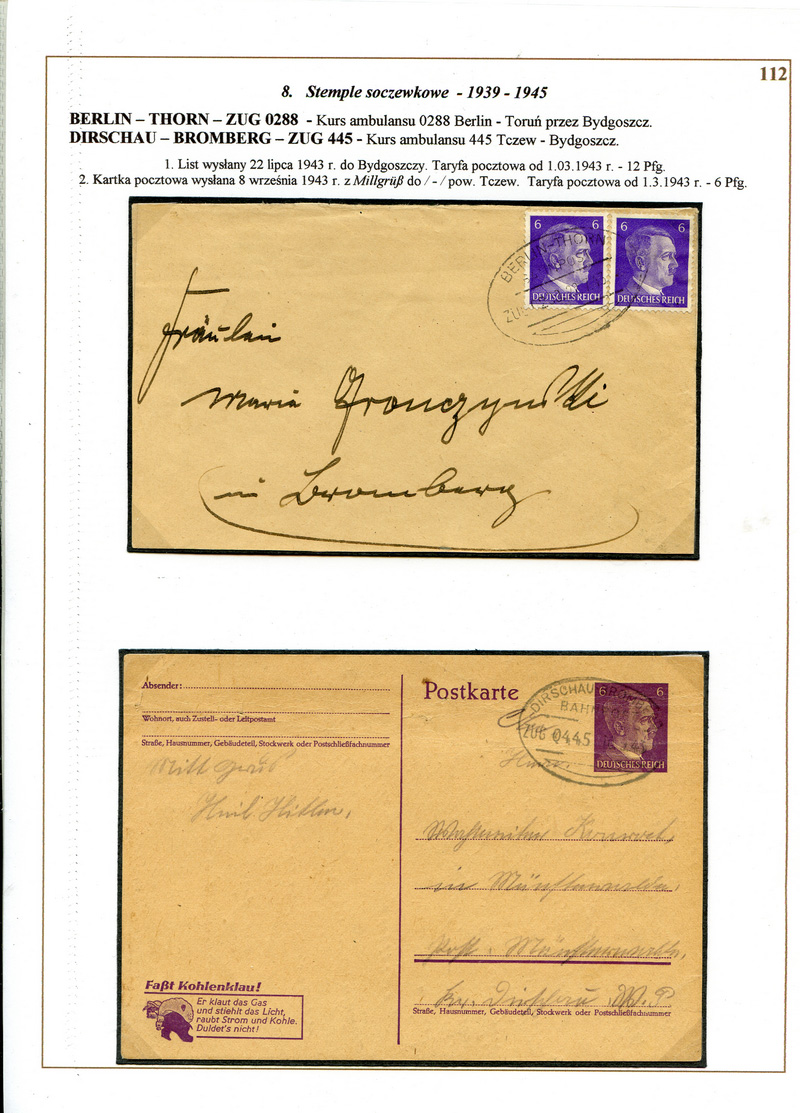 112
8. Stemple soczewkowe - 1939 - 1945
BERLIN – THORN – ZUG 0288 - Kurs ambulansu 0288 Berlin - Toruń przez Bydgoszcz.
DIRSCHAU – BROMBERG – ZUG 445 - Kurs ambulansu 445 Tczew - Bydgoszcz.
1. List wysłany 22 lipca 1943 r. do Bydgoszczy. Taryfa pocztowa od 1.03.1943 r. - 12 Pfg.
2. Kartka pocztowa wysłana 8 września 1943 r. z Millgrüß do / - / pow. Tczew. Taryfa pocztowa od 1.3.1943 r. - 6 Pfg.
6 6 6 6
BERLIN-THORN
ZUG
DEUTSCHES REICH DEUTSCHES REICH
Fräulein
Maria Gronczynski
in Bromberg
Absender:
Wohnort, auch Zustell- oder Leitpostamt
Straße, Hausnummer, Gebäudeteil, Stockwerk oder Postschließfachnummer
Postkarte
6 6
DIRSCHAU-BROMBERG
BAHNPOST
ZUG 0445
DEUTSCHES REICH
Heil Hitler,
in
Post
Kr. Dirschau, W.P.
Straße, Hausnummer, Gebäudeteil, Stockwerk oder Postschließfachnummer
Faßt Kohlenklau!
Er klaut das Gas
und stiehlt das Licht,
raubt Strom und Kohle.
Duldet's nicht!